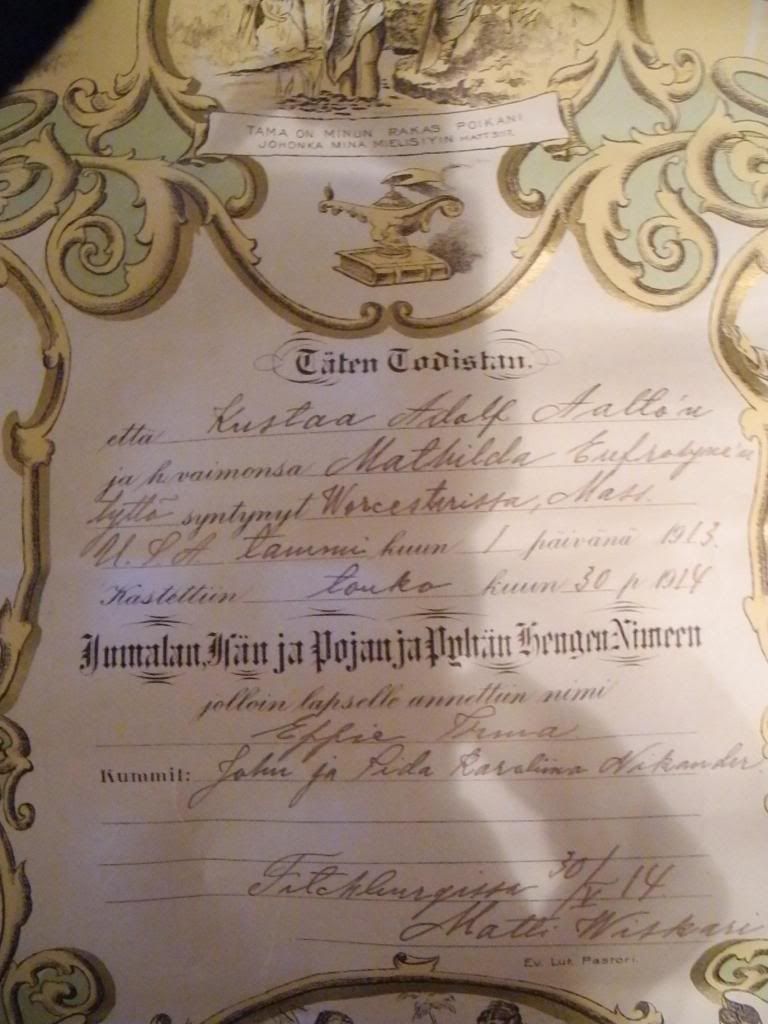 TÄMÄ ON MINUN RAKAS POIKANI
JOHONKA MINÄ MIELISTYIN MATT 3:17.
Täten Todistan.
että Kustaa Adolf Aalto'n
ja h. vaimonsa Mathilda Eufrosyne'n
tyttö syntynyt Worcesterissa, Mass.
U. S. A. tammi kuun 1 päivänä 1913.
Kastettiin touko kuun 30 p. 1914
Jumalan, Isän ja Pojan ja Pyhän Hengen Nimeen
jolloin lapselle annettiin nimi
Effie Irma
Kummit: John ja Iida Karoliina Nikander
Fitchburgissa 30/V 14.
Matti Wiskari
Ev. Lut. Pastori.